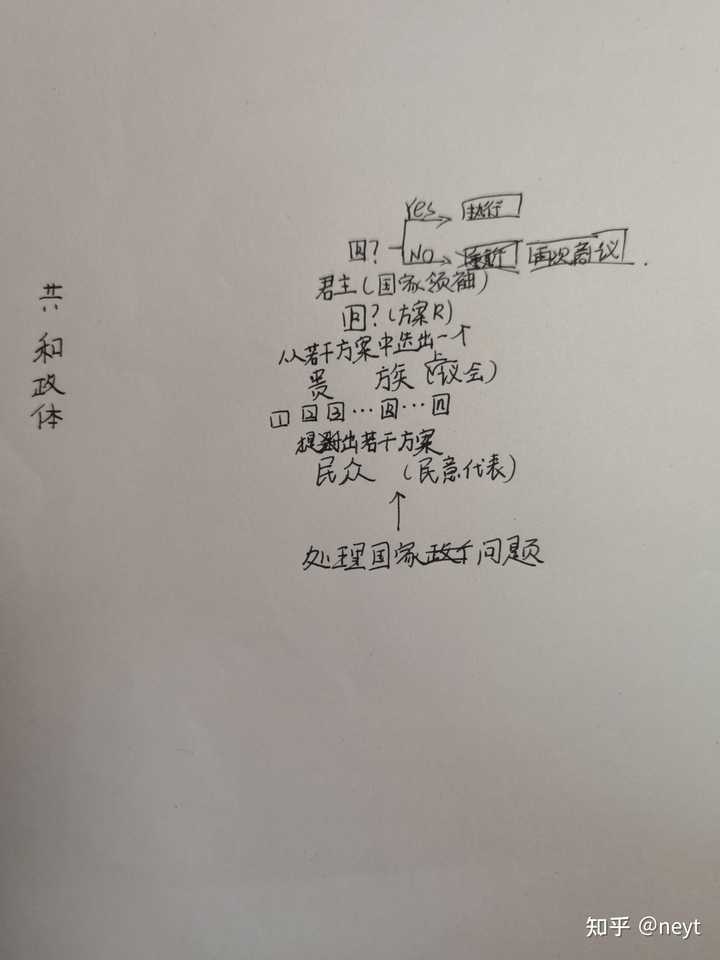 共和政体
Yes 执行
R?
NO 再次商议.
君主(国家领袖)
R?(方案R)
从若干方案中选出一个
贵 族 (议会)
1 2 3 … R … n
提出若干方案
民众 (民意代表)
↑
处理国家问题
知乎 @neyt